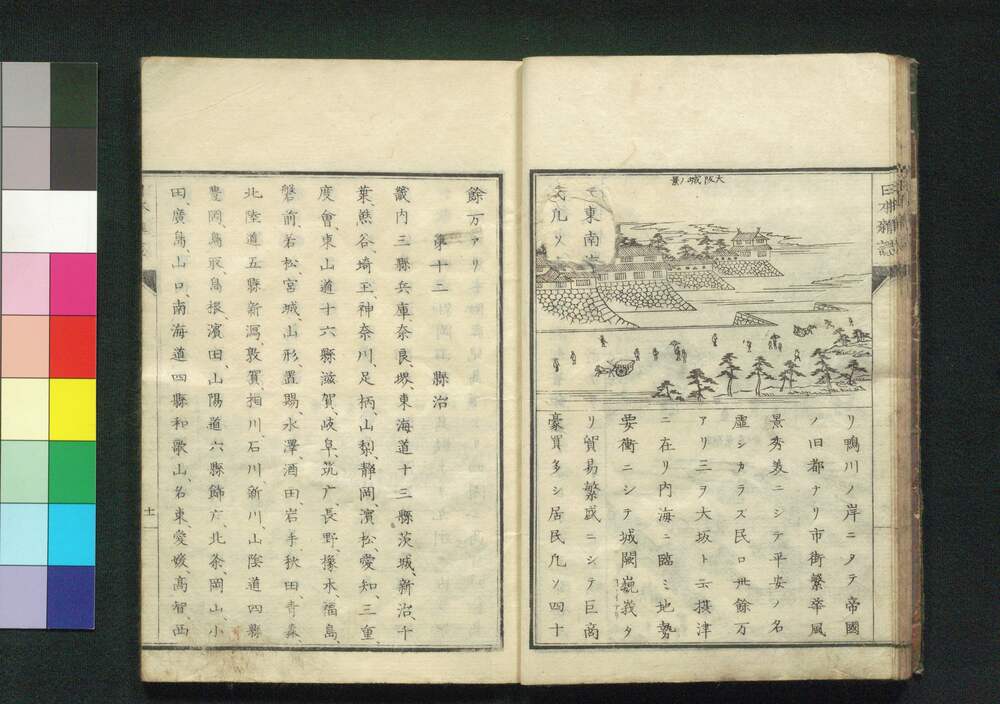 日本雜誌
大阪城ノ景
其東南海
凡ソ
リ鴨川ノ岸ニタテ帝國
ノ旧都ナリ市街繁華風
景秀美ニシテ平安ノ名
虚シカラス民口卅餘万
アリ三ヲ大坂ト云摂津
ニ在リ内海ニ臨ミ地勢
要衝ニシテ城闕巍峩タ
リ貿易繁盛ニシテ巨商
豪賈多シ居民凡ソ四十
餘万アリ
第十二 縣治
畿内三縣兵庫、奈良、堺、東海道十三縣茨城、新治、千
葉、熊谷、埼玉、神奈川、足柄、山梨、靜岡、濱松、愛知、三重、
度會、東山道十六縣滋賀、岐阜、筑广、長野、橡木、福島、
磐前、若松、宮城、山形、置賜、水澤、酒田、岩手、秋田、青森、
北陸道五縣新潟、敦賀、相川、石川、新川、山陰道四縣
豊岡、鳥取、島根、濱田、山陽道六縣飾广、北条、岡山、小
田、廣島、山口、南海道四縣和歌山、名東、愛媛、高智、西
十一